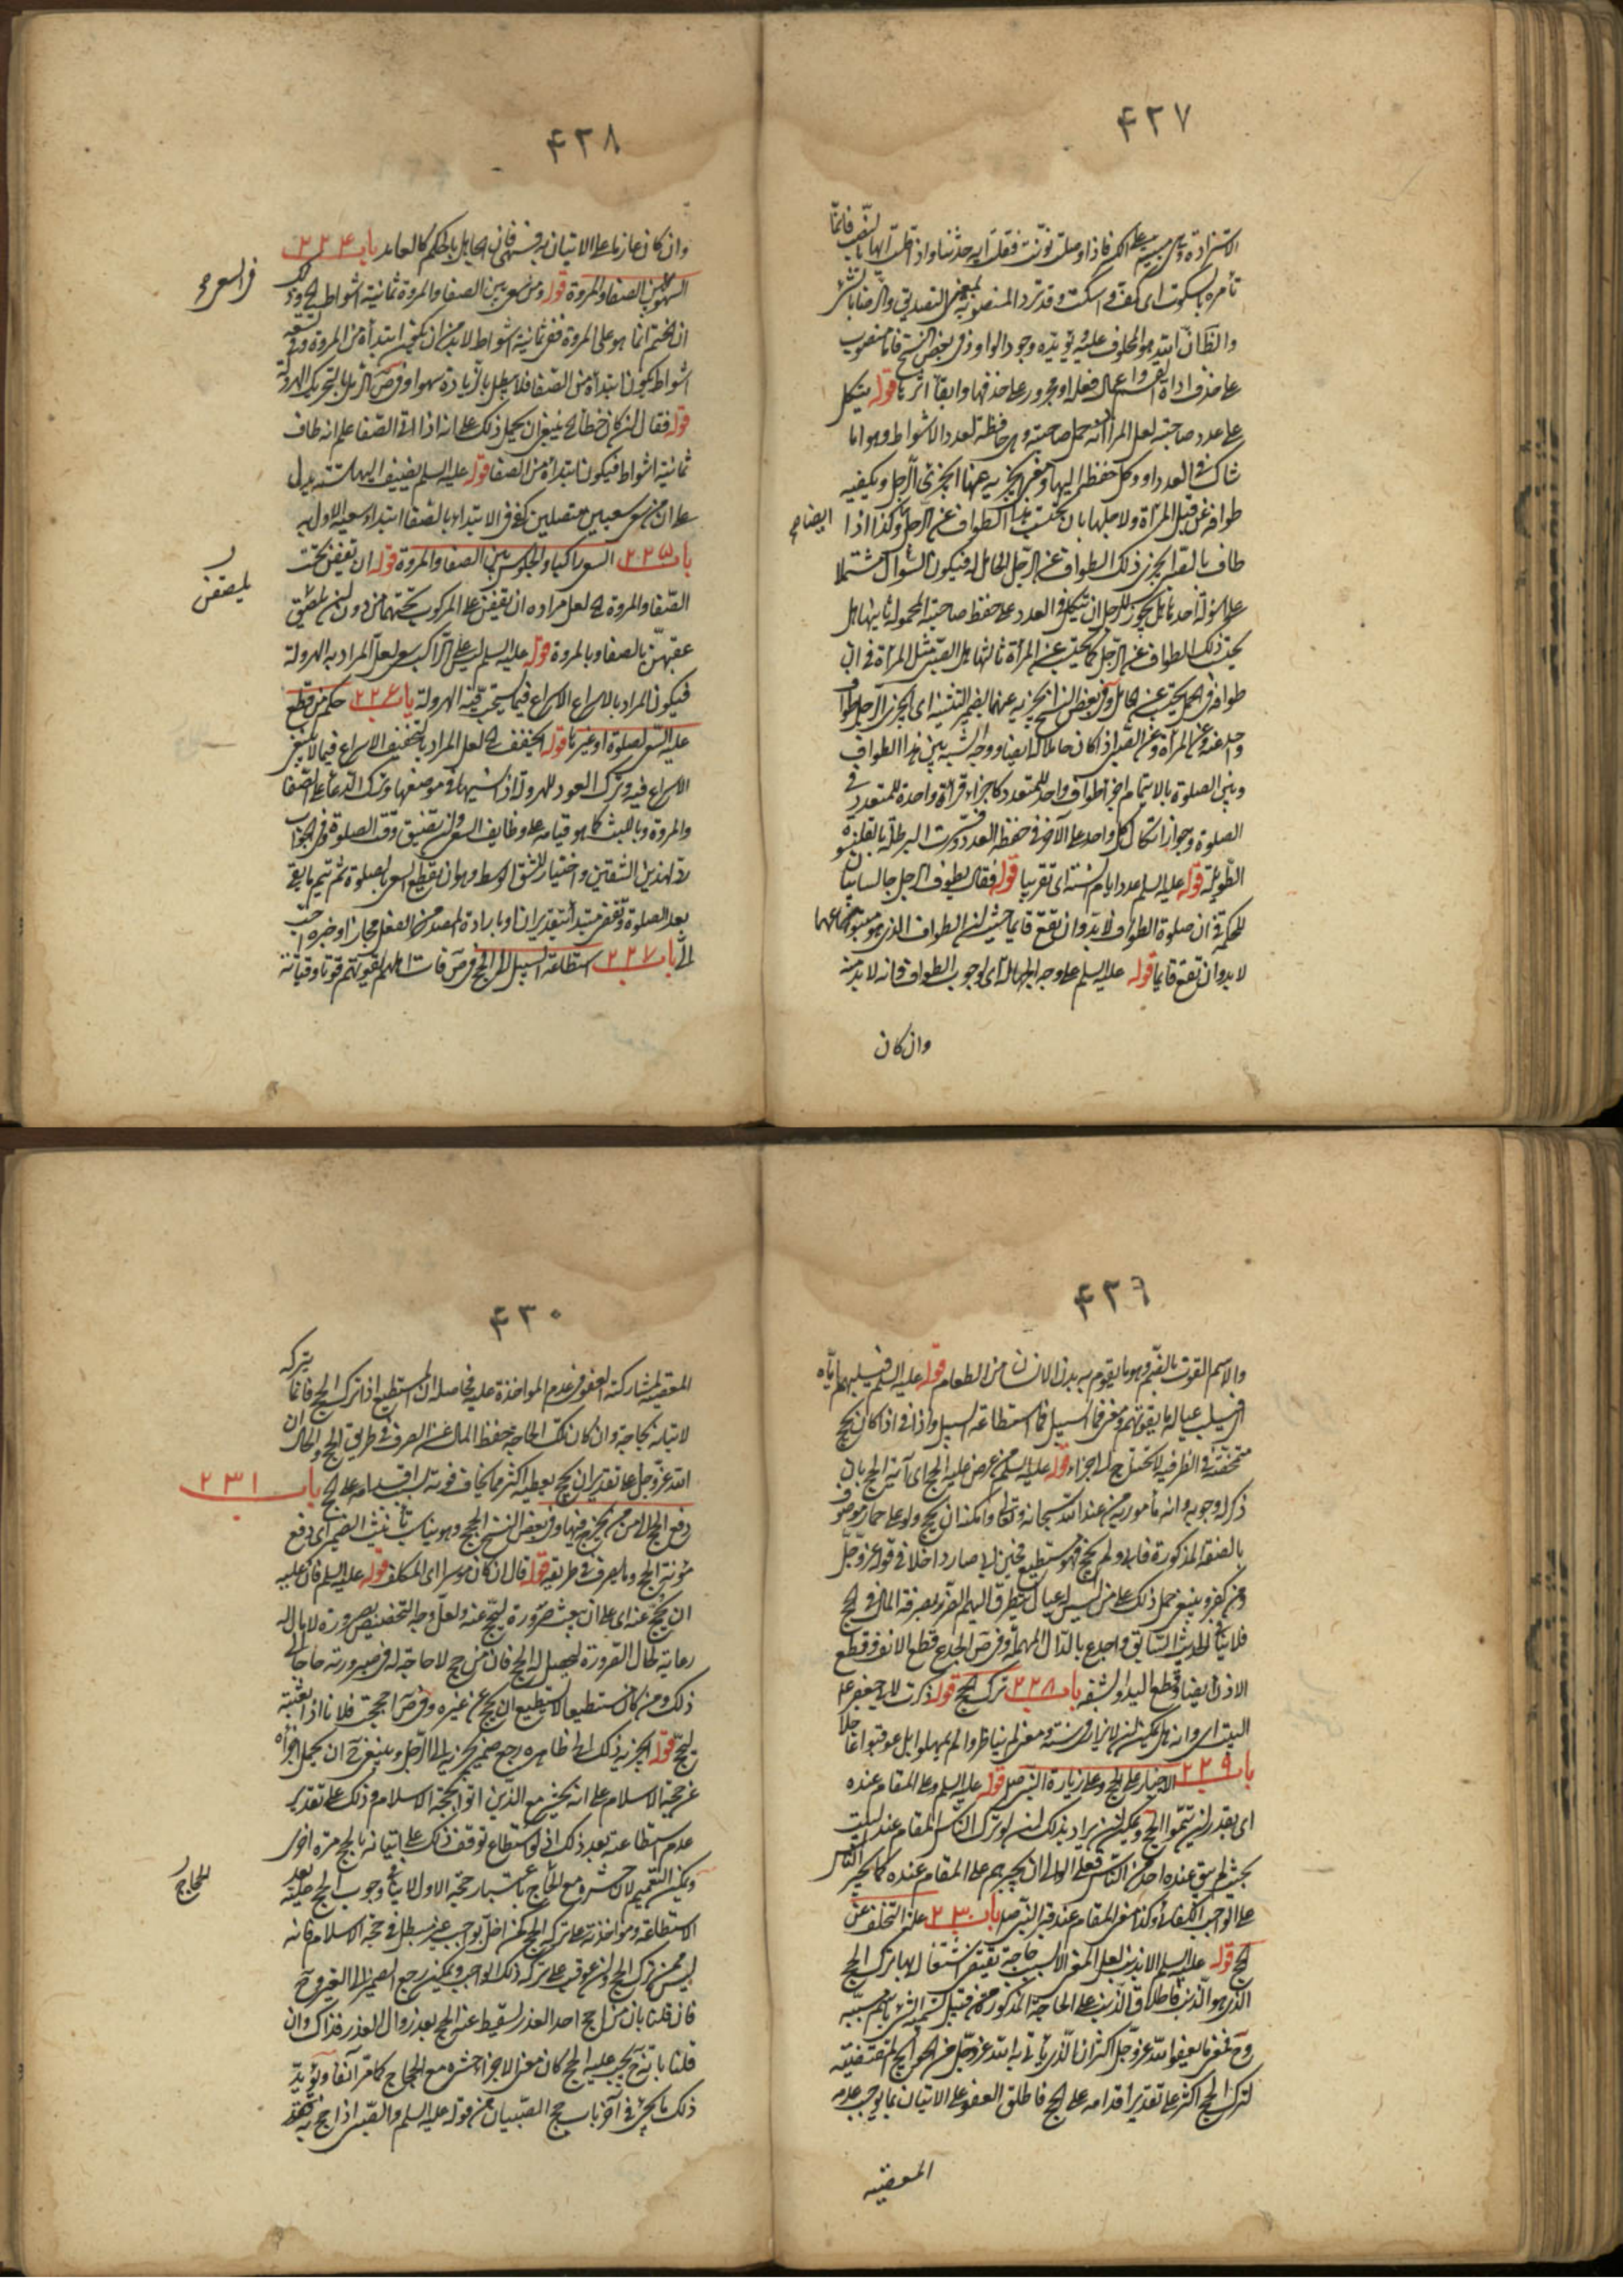 ٤٢٧
تأمره بالسكوت اى كفف اسكت وقد ترد المنصوبة بمعنى التصديق والرضا بالشئ
على عدد صاحبته لعل المراد انه حمل صاحبته وهى حافظة لعدد الاشواط وهو اما
طوافه عن قبل المرأة ولاجلها بان يحتسب هذا الطواف عن الرجل وكذا اذا
ايضا صح
طاف بالصبى يجزى ذلك الطواف عن الرجل الحامل له فيكون السؤال مشتملا
على اسؤلة احدها هل يجوز للرجل ان يتكل فى العدد على حفظ صاحبته المحمولة ثانيها هل
يحتسب ذلك الطواف عن الرجل كما يحتسب عن المرأة ثالثها هل الصبى مثل المرأة فى ان
واحد عنه وعن المرأة وعن الصبى اذا كان حاملا له ايضا ووجه الشبه بين هذا الطواف
وبين الصلوة بالايتمام اجزاء طواف واحد للمتعدد كاجزاء قرأة واحدة للمتعدد فى
الصلوة وجواز اتكال كل واحد على الآخر فى حفظ العدد وفسرت البرطلة بالقلنسوة
الطويلة قوله عليه السلم عدد ايام السنة اى تقريبا قوله فقال يطوف الرجل جالسا بيانا
للحكم فى ان صلوة الطواف لابد وان تقع قايما
لابد وان تقع قايما قوله عليه السلم على وجه الجهالة اى لوجوب الطواف فانه لابد منه
وان كان
٤٢٨
وان كان عازما على الاتيان به فى فان الجاهل بالحكم كالعامد باب ٢٢٤
السهو بين الصفا والمروة قوله ومن سعى بين الصفا والمروة ثمانية اشواط
فى السعى صح
ان الختم انما هو على المروة ففى ثمانية اشواط لابد من ان يكون ابتدأه من المروة وفى تسعة
اشواط يكون ابتدأه من الصفا فلا يبطل بالزيادة سهوا وفى ص الرمل بالتحريك الهرولة
قوله فقال ان كان خطأ الخ ينبغى ان يحمل ذلك على انه اذا اتى الصفا علم انه طاف
ثمانية اشواط فيكون ابتدأه من الصفا قوله عليه السلم يضيف اليها ستة يدل
على ان من سعى سعيين متصلين كفى فى الابتداء بالصفا ابتداء سعيه الاول به
باب ٢٢٥ السعى راكبا والجلوس بين الصفا والمروة قوله ان تقفن تحت
الصفا والمروة الخ لعل مراده ان يقفن على المركوب تحتهما من دون ان يلصقن
يلصقن
عقبهن بالصفا وبالمروة قوله عليه السلم ليس على الراكب سعى لعل المراد به الهرولة
فيكون المراد بالاسراع الاسراع فيما يستحب فيه الهرولة باب ٢٢٦ حكم من قطع
عليه السعى لصلوة او غيرها قوله يخفف الخ لعل المراد بالتخفيف الاسراع فيما لا ينبغى
الاسراع فيه وترك العود للهرولة اذا نسيها فى موضعها وترك الدعا على الصفا
والمروة وباللبث كما هو قيامه على وظايف السعى وان يضيق وقت الصلوة وفى الجواب
رد لهذين الشقين واختيار للشق الوسط وهو ان يقطع السعى بالصلوة ثم يتم ما بقى
بعد الصلوة وتقف مبتدأ بتقدير ان او بارادة المصدر من الفعل مجازا وخبره احب
الى باب ٢٢٧ استطاعة السبيل الى الحج وفى ص قات اهله يقوتهم قوتا وقياتة
٤٢٩
والاسم القوت بالضم وهو ما يقوم به بدن الانسان من الطعام قوله عليه السلم فيسلبهم اياه
اى يسلب عياله ما يقوتهم ومعنى فما السبيل فما استطاعة السبيل واذا فى اذا كان يحج
متمحضة فى الظرفية لا تحتاج الى جزاء قوله عليه السلم من عرض عليه الحج اى آية الحج بان
ذكر له وجوبه وانه مأمور به من عند الله سبحانه وتعالى وامكنه ان يحج ولو على حمار موصوف
بالصفة المذكورة فابى ولم يحج فهو مستطيع فحين ابى صار داخلا فى قوله عز وجل
ومن كفر وينبغى حمل ذلك على من ليس له عيال يتطرق اليهم الضرر بصرفه المال فى الحج
فلا ينافى الحديث السابق واجدع بالدال المهملة وفى ص الجدع قطع الانف وقطع
الاذن ايضا وقطع اليد والشفة باب ٢٢٨ ترك الحج قوله ذكرت لابى جعفر ع
البيت اى وانه هل يمكن ان لا يزار فى سنة ومعنى لم يناظروا لم يمهلوا بل عوقبوا عاجلا
باب ٢٢٩ الاجبار على الحج وعلى زيارة النبى ص قوله عليه السلم وعلى المقام عنده
اى بقدر ان يتموا الحج ويمكن ان يراد بذلك انه لو ترك الناس المقام عند البيت
بحيث لم يبق عنده احد من الناس فعلى الوالى ان يجبرهم على المقام عنده كما يجبر الناس
على الواجب الكفائى وكذا معنى المقام عند قبر النبى ص باب ٢٣٠ علة التخلف عن
الحج قوله عليه السلم الا بذنب لعل المعنى الا بسبب حاجة يقتضى اشتغاله بها ترك الحج
الذى هو الذنب فاطلاق الذنب على الحاجة المذكورة من قبيل تسمية الشئ باسم مسببه
لترك الحج اكثر على تقدير اقدامه على الحج فاطلق العفو على الاتيان بما يوجب عدم
المعصية
٤٣٠
المعصية لمشاركته العفو فى عدم المواخذة عليه فحاصله ان المستطيع اذا ترك الحج فانما يتركه
لاتيانه بحاجة وان كان تلك الحاجة حفظ المال عن الصرف فى طريق الحج والحال ان
الله عز وجل على تقدير ان يحج يعطيه اكثر مما يخاف فوته لو اقدامه على الحج باب ٢٣١
دفع الحج الى من يخرج فيها وفى بعض النسخ الحجج وهو يناسب تأنيث الضمير اى دفع
مؤنة الحج وما يصرف فى طريقه قوله قال ان كان موسرا اى المكلف قوله عليه السلم فان عليه
ان يحج عنه اى على ان يبعث صرورة ليحج عنه ولعل وجه التخصيص بصرورة لا مال له
رعاية لحال الصرورة ليحصل له الحج فان من حج لا حاجة له فى صيرورته حاجا الى
ذلك ومن كان مستطيعا لا يستطيع ان يحج عن غيره وفى ص احججت فلانا اذا بعثته
ليحج قوله يجزيه ذلك الخ ظاهره رجع ضمير يجزيه الى الرجل وينبغى ح ان يحمل اجزأه
عن حجة الاسلام على انه يحشر مع الذين اتوا بحجة الاسلام وذلك على تقدير
عدم استطاعته بعد ذلك اذ لو استطاع توقف ذلك على اتيانه بالحج مرة اخرى
ويمكن التعميم لان حشره مع الحاج باعتبار حجة الاول لا ينافى وجوب الحج عليه بعد
للحاج
الاستطاعة ومواخذته على تركه الحج
ليس ممن ترك الحج وان عوقب على ترك ذلك الواجب ويمكن رجع الضمير الى الغير وح
فان قلنا بان من احج احدا لعذر لسقط عنه الحج بعد زوال العذر فذاك وان
قلنا بانه ح يجب عليه الحج كان معنى الاجزاء حشره مع الحجاج كما مر آنفا ويؤيد
ذلك ما يجئ فى آخر باب حج الصبيان من قوله عليه السلم والصبى اذا حج به فقد